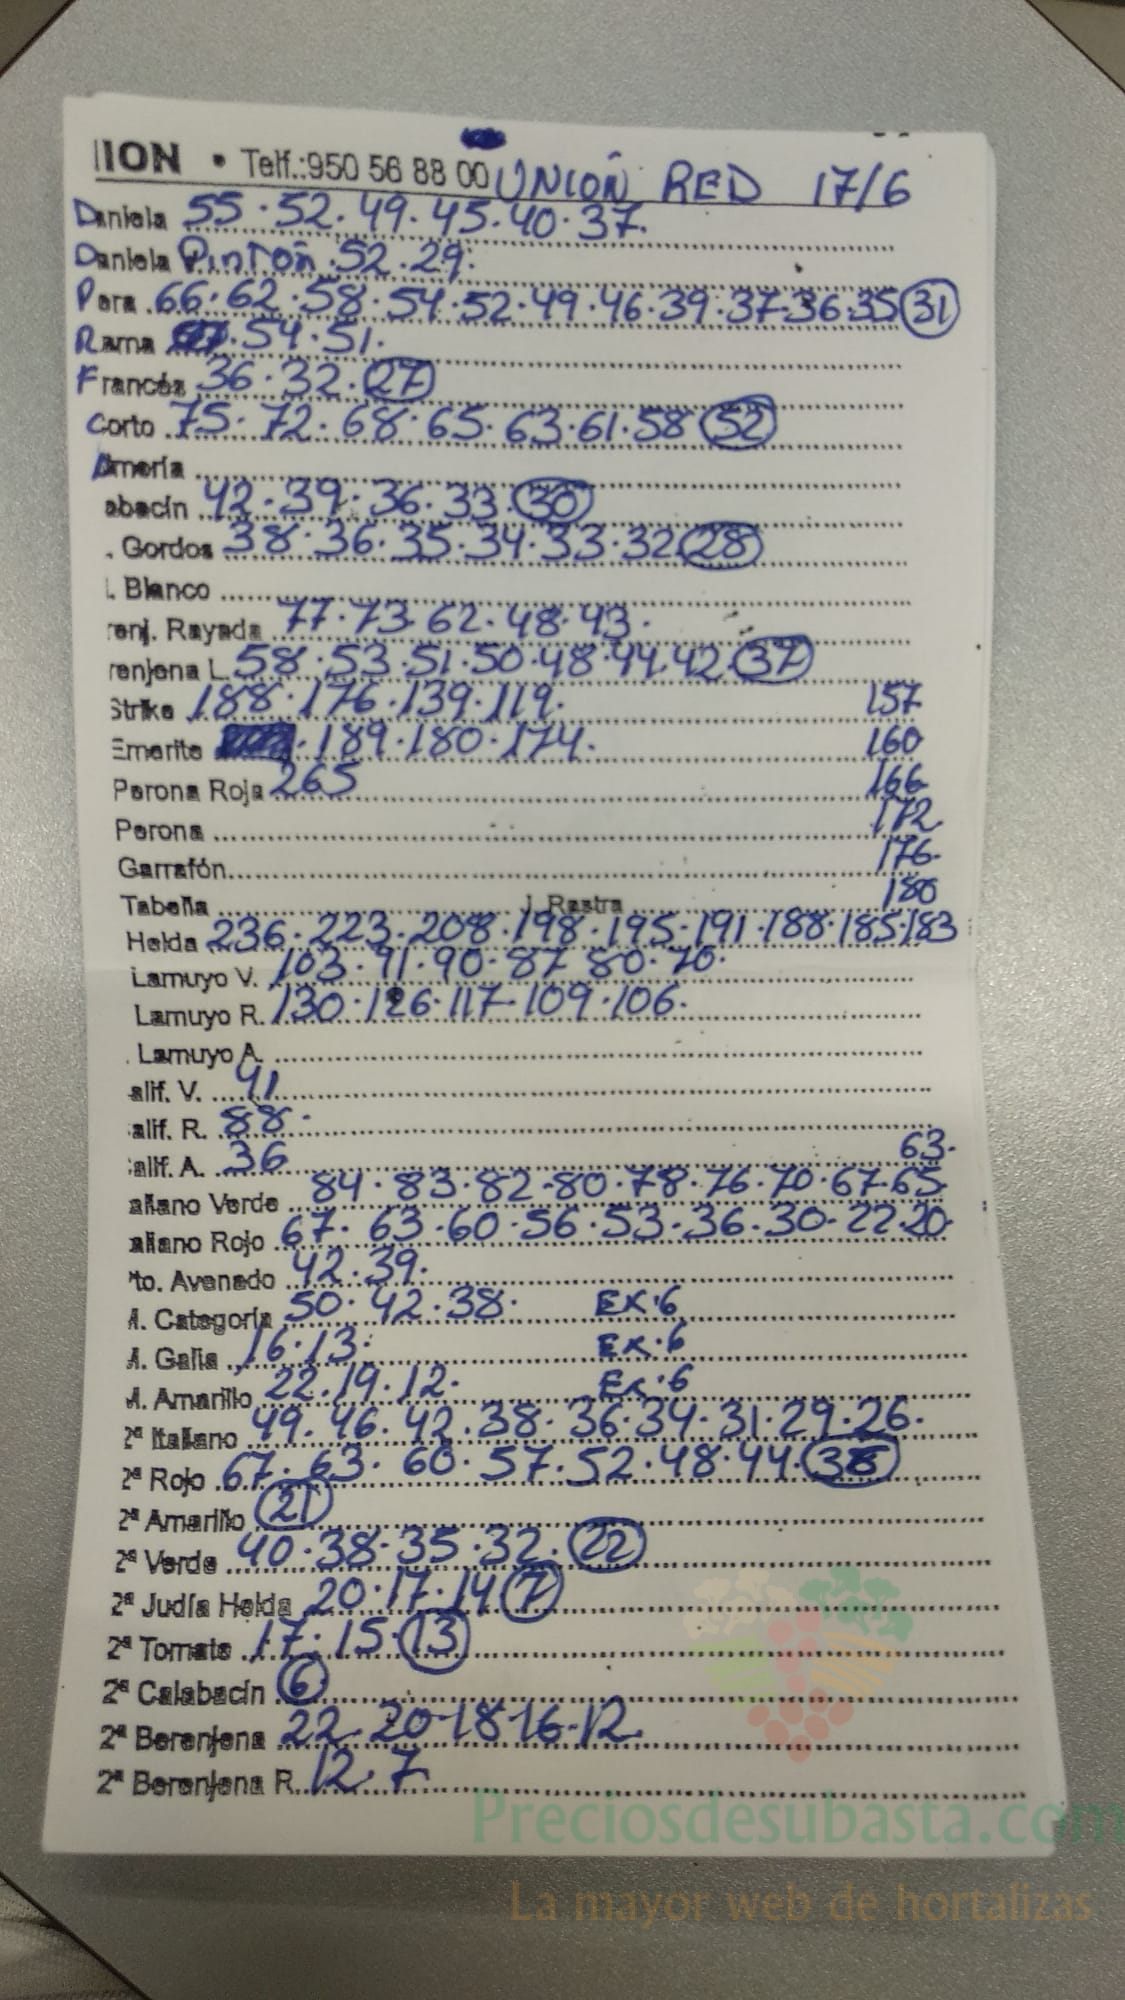 IION • Telf.:950 56 88 00 UNION RED 17/6
Daniela 55.52.49.45.40.37.
Daniela Pinton.52.29.
Pera 66.62.58.54.52.49.46.39.37.36.35 31
Rama 54.51.
Francés 36.32.27
Corto 75.72.68.65.63.61.58 52
Almería
abacín 42.39.36.33.30
. Gordos 38.36.35.34.33.32 28
l. Blanco
renj. Rayada 77.73.62.48.43.
renjena L. 58.53.51.50.48.44.42.37
Strike 188.176.139.119. 157
Emerite 189.180.174. 160
Perona Roja 265 166
Perona 172
Garrafón 176.
Tabella J. Rastra 180
Helda 236.223.208.198.195.191.188.185.183
Lamuyo V. 103.91.90.87.80.70.
Lamuyo R. 130.126.117.109.106.
. Lamuyo A.
alif. V. 41
alif. R. 88.
alif. A. 36 63.
aliano Verde 84.83.82.80.78.76.70.67.65
aliano Rojo 67.63.60.56.53.36.30.22.20.
to. Avenado 42.39.
M. Categoría 50.42.38. EX.6
M. Galia 16.13. EX.6
M. Amarillo 22.19.12. EX.6
2ª Italiano 49.46.42.38.36.34.31.29.26.
2ª Rojo 67.63.60.57.52.48.44.38
2ª Amarillo 21
2ª Verde 40.38.35.32.22
2ª Judía Helda 20.17.14 7
2ª Tomate 17.15.13
2ª Calabacín 6
2ª Berenjena 22.20.18.16.12.
2ª Berenjena R. 12.7
Preciosdesubasta.com
La mayor web de hortalizas